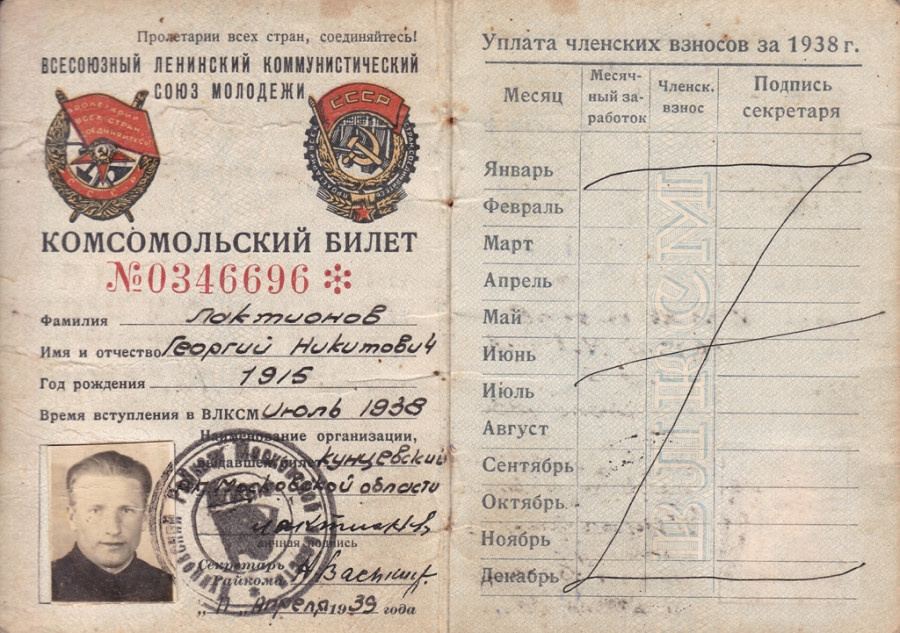 Пролетарии всех стран, соединяйтесь!
ВСЕСОЮЗНЫЙ ЛЕНИНСКИЙ КОММУНИСТИЧЕСКИЙ
СОЮЗ МОЛОДЕЖИ
ПРОЛЕТАРИИ
ВСЕХ СТРАН
СОЕДИНЯЙТЕСЬ
СССР
СССР
КОМСОМОЛЬСКИЙ БИЛЕТ
№0346696
Фамилия Лактионов
Имя и отчество Георгий Никитович
Год рождения 1915
Время вступления в ВЛКСМ июль 1938
Наименование организации,
выдавшей билет Кунцевский
рк Московской области
Лактионов
личная подпись
Секретарь
Райкома
„11„ Апреля 1939 года
Уплата членских взносов за 1938 г.
Месяц
Месяч-
ный за-
работок
Членск.
взнос
Подпись
секретаря
Январь
Февраль
Март
Апрель
Май
Июнь
Июль
Август
Сентябрь
Октябрь
Ноябрь
Декабрь
ВЛКСМ